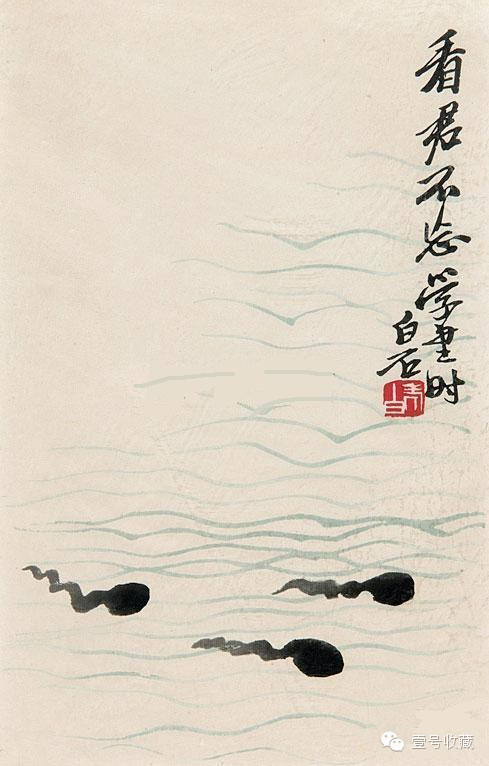 看君不忘学書时
白石
壹号收藏